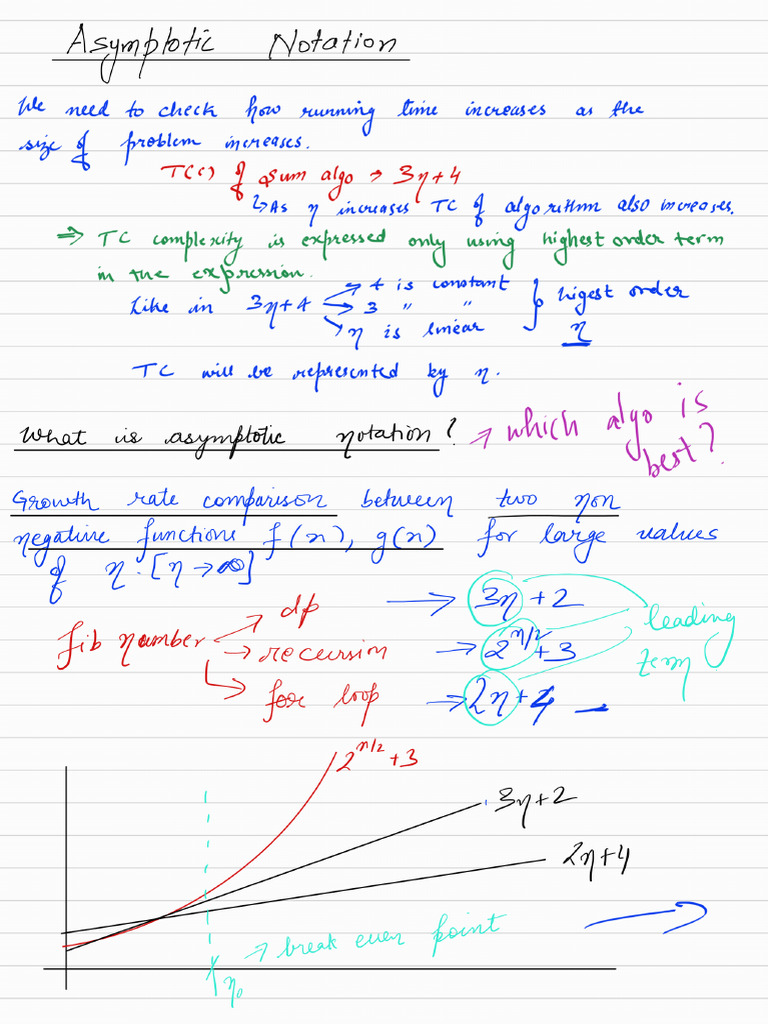 Asymptotic Notation
We need to check how running time increases as the
size of problem increases.
TC() of sum algo → 3n+4
↳ As n increases TC of algorithm also increases.
⇒ TC complexity is expressed only using highest order term
in the expression.
Like in 3n+4 → 4 is constant
→ 3 " "
→ n is linear
} higest order
n
TC will be represented by n.
What is asymptotic notation? → which algo is
best?
Growth rate comparison between two non
negative functions f(n), g(n) for large values
of n. [n→∞]
fib number → dp → 3n+2
→ recursion → 2^n/2+3
→ for loop → 2n+4
leading
term
2^n/2+3
3n+2
2n+4
→ break even point
n₀